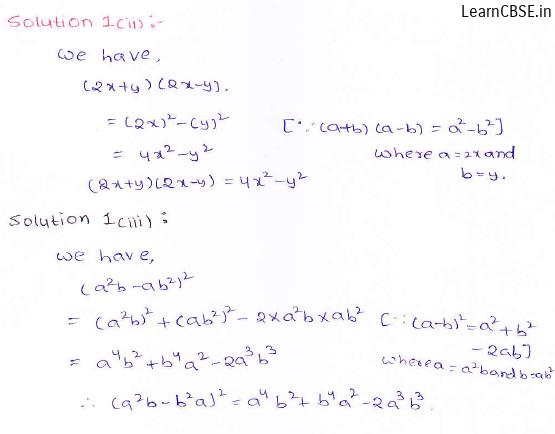 LearnCBSE.in
Solution 1(ii):-
we have,
(2x+y)(2x-y).
= (2x)²-(y)² [∵(a+b)(a-b) = a²-b²]
= 4x²-y² where a=2x and
b=y.
(2x+y)(2x-y) = 4x²-y²
Solution 1(iii):
we have,
(a²b-ab²)²
= (a²b)²+(ab²)²-2×a²b×ab² [∵(a-b)²=a²+b²
-2ab]
= a⁴b²+b⁴a²-2a³b³ where a=a²b and b=ab²
∴ (a²b-b²a)²=a⁴b²+b⁴a²-2a³b³.